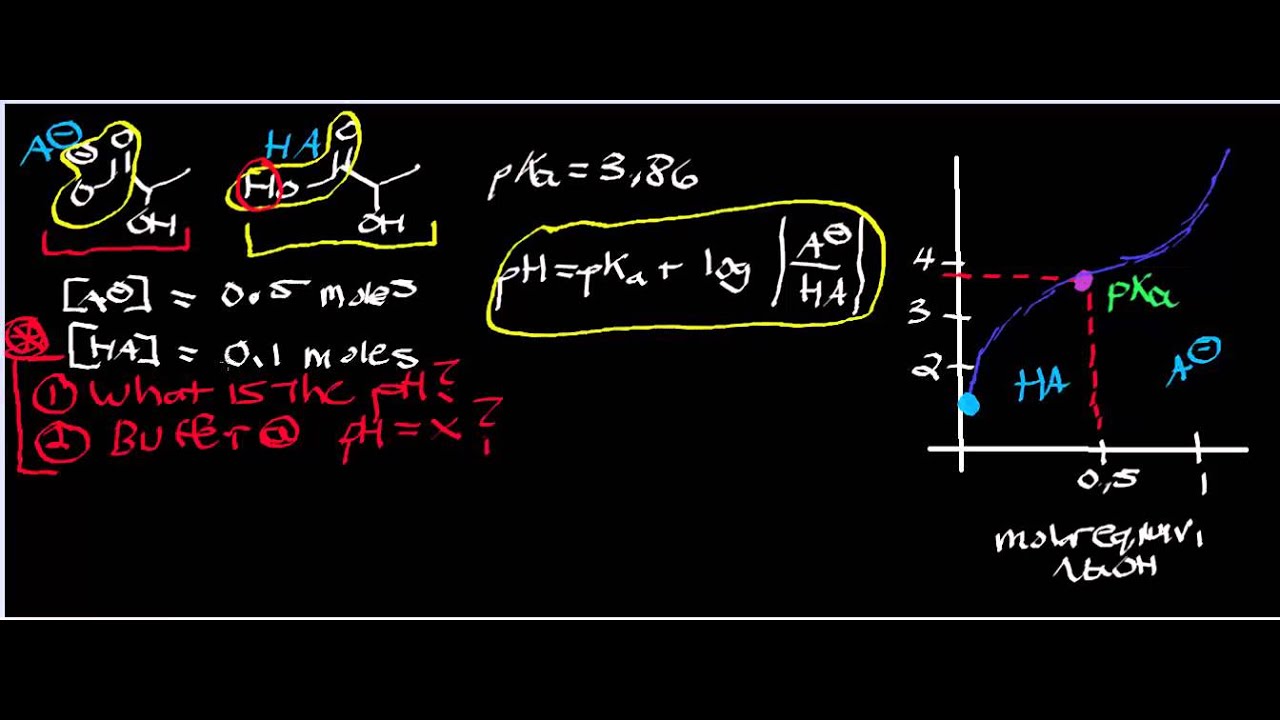 A⊖
⊖ O
O
OH
HA
O
HO
OH
[A⊖] = 0.5 moles
[HA] = 0.1 moles
① What is the pH?
② Buffer @ pH = x ?
pKa = 3,86
pH = pKa + log |A⊖/HA|
4
3
2
pKa
HA
A⊖
0,5
1
molar equiv,
NaOH